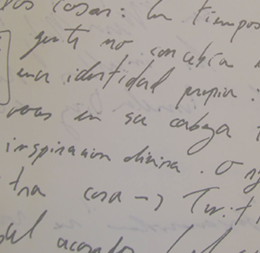 cosas: En tiempos
gente no concebía
una identidad propia:
voces en su cabeza
inspiracion divina. O
otra cosa -> Tw.t
del acorador